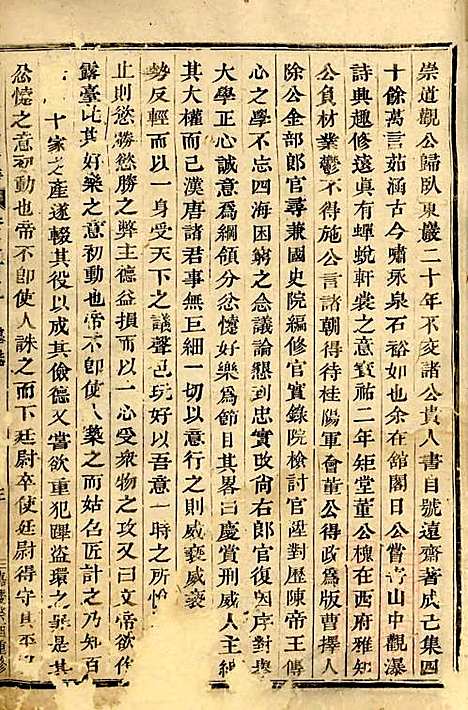 崇道觀公歸臥東巖二十年不交諸公貴人書自號遠齋著成己集四
十餘萬言茹涵古今嘯永泉石裕如也余在館閣日公嘗寄山中觀瀑
詩典趣修遠眞有蟬蛻軒裳之意寳祐二年矩堂董公槐在西府雅知
公負材業鬱不得施公言諸朝得待桂陽軍會董公得政爲版曹擇人
除公金部郎官尋兼國史院編修官實錄院檢討官陞對歷陳帝王傳
心之學不忘四海困窮之念議論懇到忠實攺尙右郎官復因陞對與
大學正心誠意爲綱領分忿懥好樂爲節目其畧曰慶賞刑威人主紳
其大權而已漢唐諸君事無巨細一切以意行之則威䙝威䙝
勢反輕而以一身受天下之議聲色玩好以吾意一時之所
止則慾勝慾勝之弊主德益損而以一心受衆物之攻又曰文帝欲作
露臺比其好樂之意初動也帝不卽使人築之而姑召匠計之乃知百
十家之產遂輟其役以成其儉德又嘗欲重犯蹕盜環之辠是其
忿懥之意初動也帝不卽使人誅之而下廷尉卒使廷尉得守其